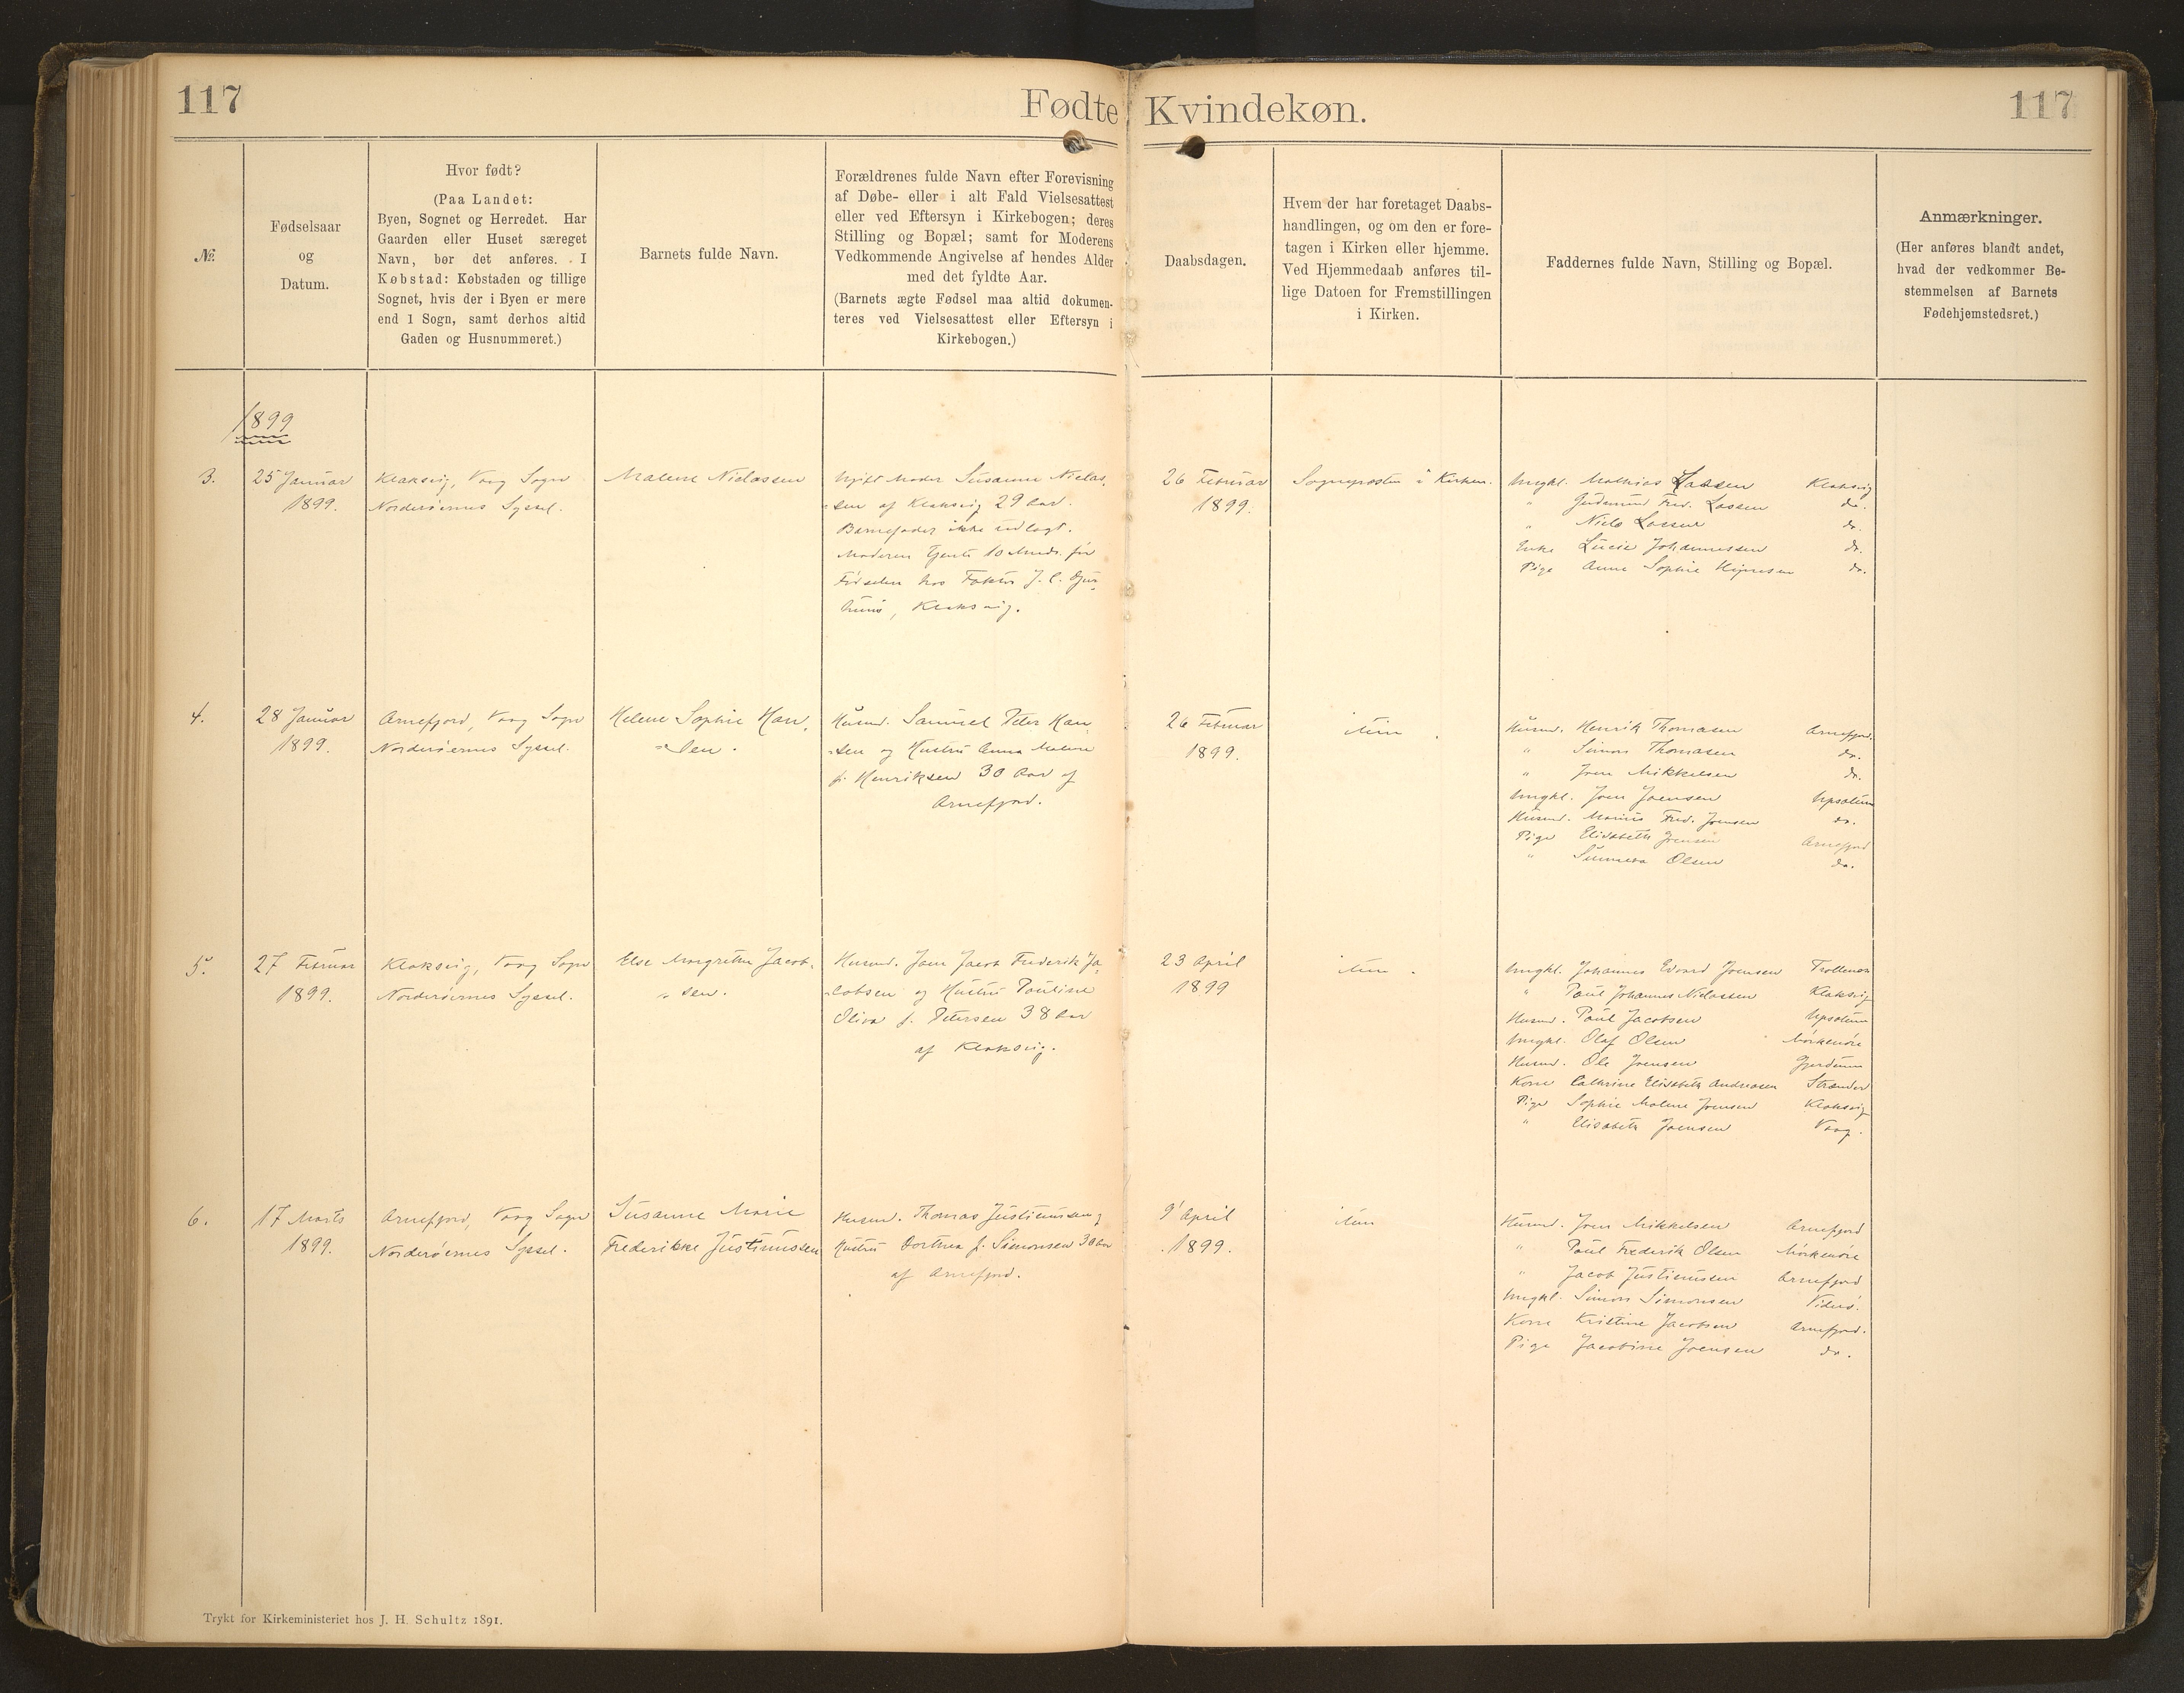 117
Fødte Kvindekøn.
117
№
Fødselsaar
og
Datum.
Hvor født?
(Paa Landet:
Byen, Sognet og Herredet. Har
Gaarden eller Huset særeget
Navn, bør det anføres. I
Købstad: Købstaden og tillige
Sognet, hvis der i Byen er mere
end 1 Sogn, samt derhos altid
Gaden og Husnummeret.)
Barnets fulde Navn.
Forældrenes fulde Navn efter Forevisning
af Døbe- eller i alt Fald Vielsesattest
eller ved Eftersyn i Kirkebogen; deres
Stilling og Bopæl; samt for Moderens
Vedkommende Angivelse af hendes Alder
med det fyldte Aar.
(Barnets ægte Fødsel maa altid dokumen-
teres ved Vielsesattest eller Eftersyn i
Kirkebogen.)
Daabsdagen.
Hvem der har foretaget Daabs-
handlingen, og om den er fore-
tagen i Kirken eller hjemme.
Ved Hjemmedaab anføres til-
lige Datoen for Fremstillingen
i Kirken.
Faddernes fulde Navn, Stilling og Bopæl.
Anmærkninger.
(Her anføres blandt andet,
hvad der vedkommer Be-
stemmelsen af Barnets
Fødehjemstedsret.)
1899
3.
25 Januar
1899.
Klaksvig, Vaag Sogn
Norderøernes Syssel.
Malene Niclassen
Ugift Moder Susanne Niclas-
sen af Klaksvig 29 Aar.
Barnefader ikke udlagt.
Moderen tjente 10 Mnd. før
Fødselen hos Faktor J. C. Djur-
huus, Klaksvig.
26 Februar
1899.
Sognepræsten i Kirken.
Ungkl. Mathias Lassen Klaksvig
" Gudmund Fred. Lassen do.
" Niels Lassen do.
Enke Lucie Johannessen do.
Pige Anne Sophie do.
4.
28 Januar
1899.
Arnefjord, Vaag Sogn
Norderøernes Syssel.
Helene Sophie Han-
sen.
Husmd. Samuel Peter Han-
sen og Hustru Anna Malene
f. Henriksen 30 Aar af
Arnefjord.
26 Februar
1899.
item
Husmd. Henrik Thomasen Arnefjord.
" Simon Thomasen do.
" Joen Mikkelsen do.
Ungkl. Joen Joensen Upsalum
Husmd. Marius Fred. Joensen do.
Pige Elisabeth Joensen Arnefjord
" Sunneva Olsen do.
5.
27 Februar
1899.
Klaksvig, Vaag Sogn
Norderøernes Syssel.
Else Margrethe Jacob-
sen.
Husmd. Joen Jacob Frederik Ja-
cobsen og Hustru Pauline
Oliva f. Petersen 38 Aar
af Klaksvig.
23 April
1899
item.
Ungkl. Johannes Edvard Joensen Trøllenæs
" Poul Johannes Niclassen Klaksvig
Husmd. Poul Jacobsen Upsalum
Ungkl. Olaf Olsen Mørkenøre
Husmd. Ole Joensen Gjerdum
Kone Cathrine Elisabeth Andreasen Strænder
Pige Sophie Malene Joensen Klaksvig
" Elisabeth Joensen Vaag.
6.
17 Marts
1899.
Arnefjord, Vaag Sogn
Norderøernes Syssel.
Susanne Marie
Frederikke Justinussen
Husmd. Thomas Justinussen og
Hustru Dorthea f. Simonsen 30 Aar
af Arnefjord.
9 April
1899.
item
Husmd. Joen Mikkelsen Arnefjord
" Poul Frederik Olsen Mørkenøre
" Jacob Justinussen Arnefjord
Ungkl. Simon Simonsen Viderø.
Kone Kristine Jacobsen Arnefjord.
Pige Jacobine Joensen do.
Trykt for Kirkeministeriet hos J. H. Schultz 1891.